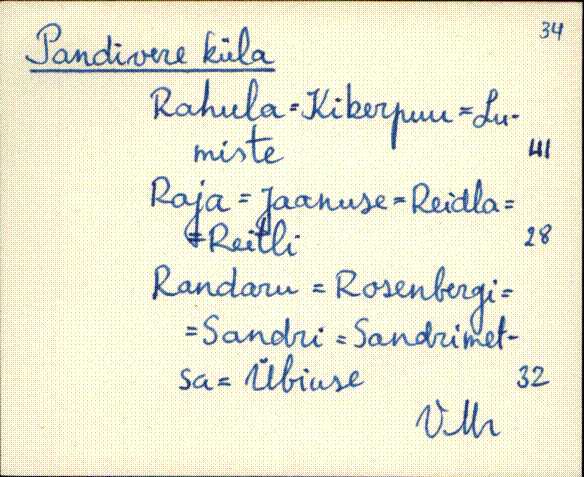 34
Pandivere küla
Rahula = Kiberpuu = Lu-
miste 41
Raja = Jaanuse = Reidla =
= Reitli 28
Randaru = Rosenbergi =
= Sandri = Sandrimet-
sa = Übiuse 32
V Mr